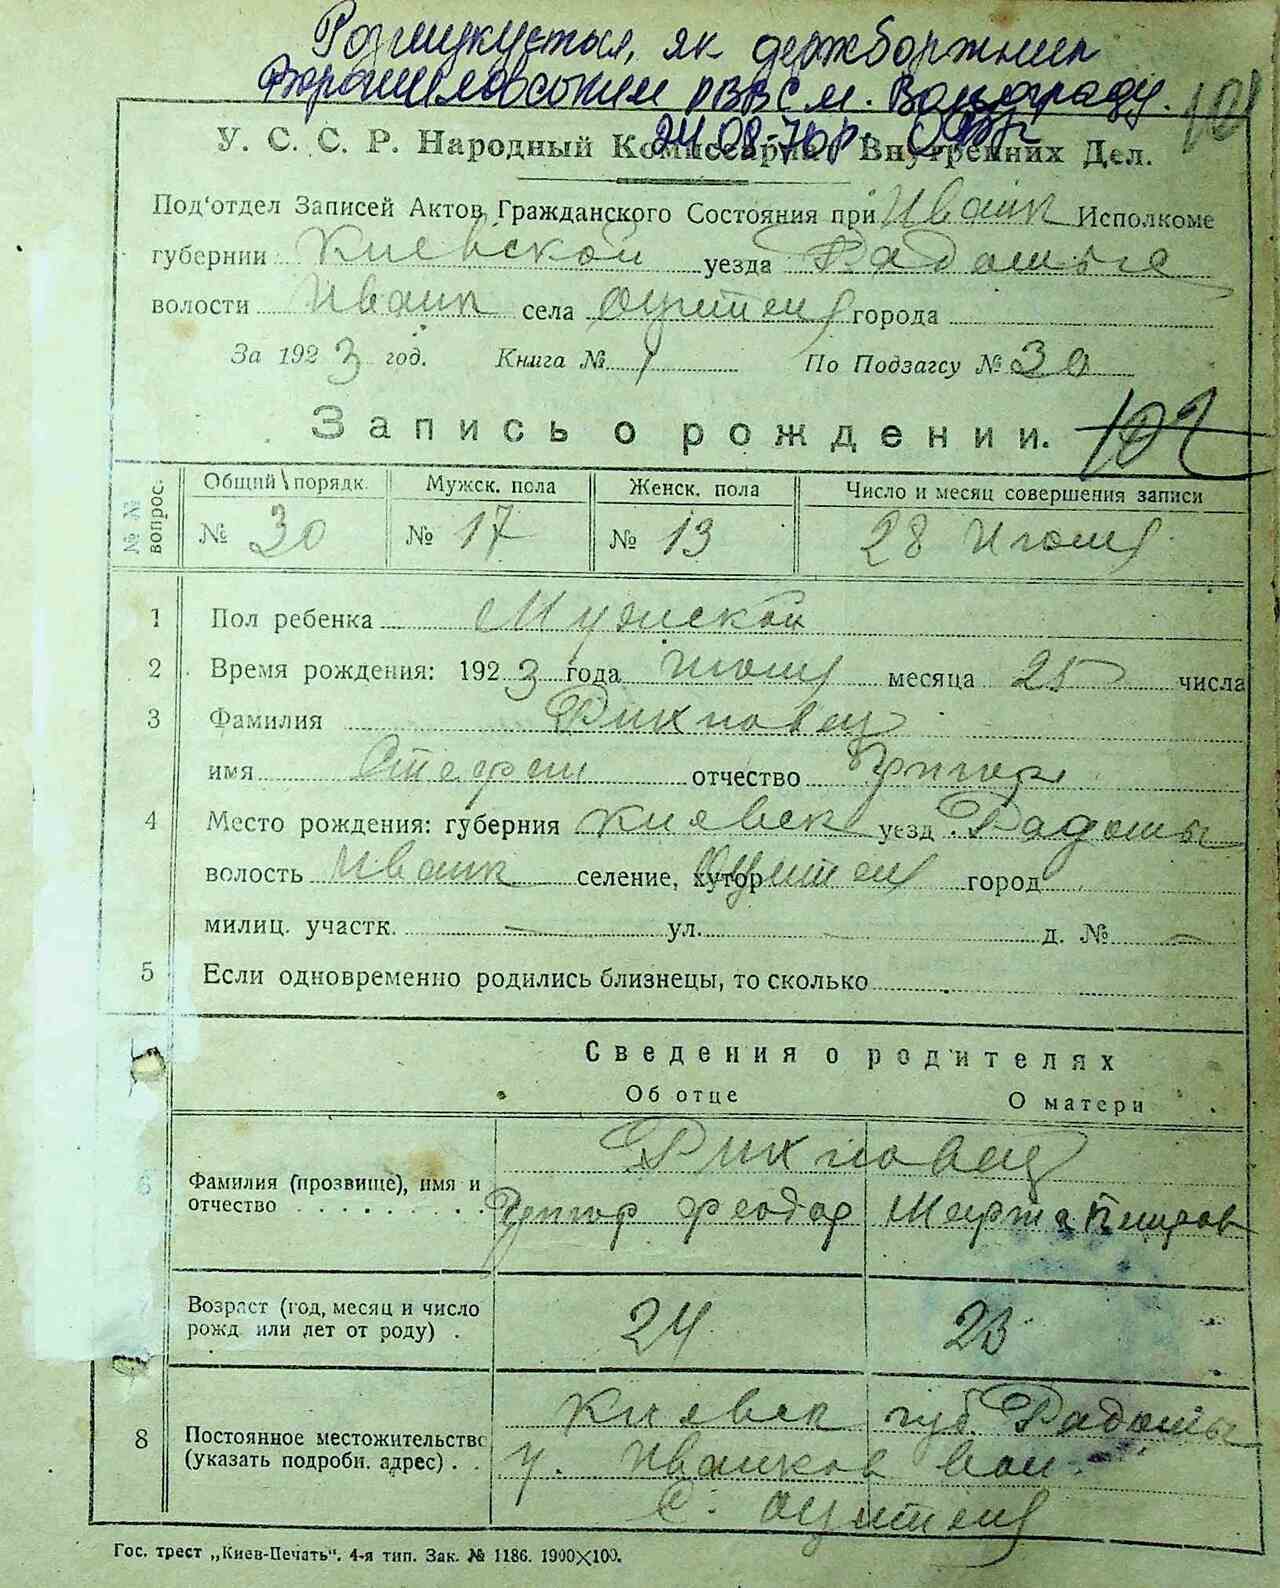 Розшукується, як держборжник
Ворошиловським РВВС м. Волгограду.
24.08-76р.
101
У. С. С. Р. Народный Комиссариат Внутренних Дел.
Под'отдел Записей Актов Гражданского Состояния при Иванк Исполкоме
губернии Киевской уезда Радомысл
волости Иванк села города
За 1923 год. Книга № 1 По Подзагсу № 30
Запись о рождении. 102
№№ вопрос. Общий порядк. Мужск. пола Женск. пола Число и месяц совершения записи
№ 30 № 17 № 13 28 Июля
1 Пол ребенка Мужской
2 Время рождения: 1923 года июля месяца 25 числа
3 Фамилия
имя Стефан отчество Григор
4 Место рождения: губерния Киевск уезд Радомы
волость Иванк селение, хутор город
милиц. участк. — ул. — д. № —
5 Если одновременно родились близнецы, то сколько
Сведения о родителях
Об отце О матери
6 Фамилия (прозвище), имя и
отчество Григор Феодор Марта
7 Возраст (год, месяц и число
рожд или лет от роду) . 24 23
Киевск губ. Радомы
8 Постоянное местожительство
(указать подробн. адрес) . . у. Иванков вол
С.
Гос. трест „Киев-Печать“. 4-я тип. Зак. № 1186. 1900×100.